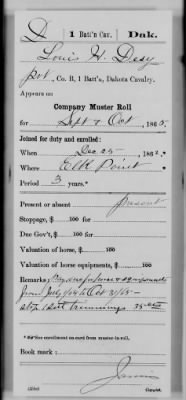 D | 1 Batt'n Cav. | Dak.
Louis H. Desy
pvt, Co. B, 1 Batt'n, Dakota Cavalry.
Appears on
Company Muster Roll
for Sept & Oct, 1865.
Joined for duty and enrolled:
When Dec 25, 1862.*
Where Elk Point
Period 3 years.*
Present or absent present
Stoppage, $ 100 for
Due Gov't, $ 100 for
Valuation of horse, $ 100
Valuation of horse equipments, $ 100
Remarks: for use
from July 1/65 to Oct 31/65
Stop 1 Belt trimmings 35 cts
* See enrollment on card from muster-in roll.
Book mark:
Copyist.